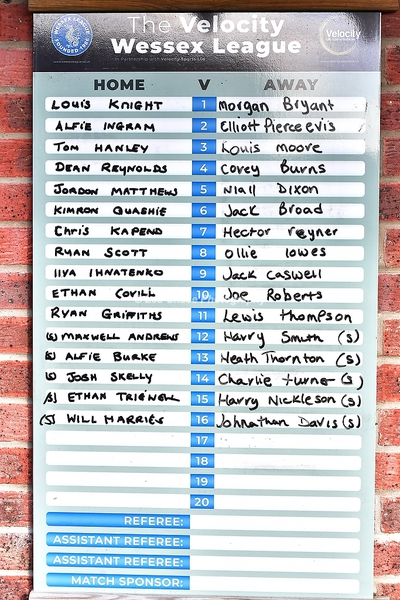 The Velocity
Wessex League
Velocity
HOME V AWAY
LOUIS KNIGHT 1 Morgan Bryant
ALFIE INGRAM 2 Elliott Pierceevis
TOM HANLEY 3 Louis moore
DEAN REYNOLDS 4 Covey Burns
JORDON MATTHEWS 5 Niall Dixon
KIMRON QUASHIE 6 Jack Broad
Chris KAPEND 7 Hector reyner
RYAN SCOTT 8 ollie lowes
IIYA IHNATENKO 9 Jack Caswell
ETHAN COVILL 10 Joe Roberts
RYAN GRIFFITHS 11 Lewis thompson
(S) MAXWELL ANDREWS 12 Harry Smith (s)
(S) ALFIE BURKE 13 Heath Thornton (s)
(S) JOSH SKELLY 14 Charlie turner (s)
(S) ETHAN 15 Harry Nickleson (s)
(S) WILL HARRIES 16 Johnathan Davis (s)
17
18
19
20
REFEREE:
ASSISTANT REFEREE:
ASSISTANT REFEREE:
MATCH SPONSOR: